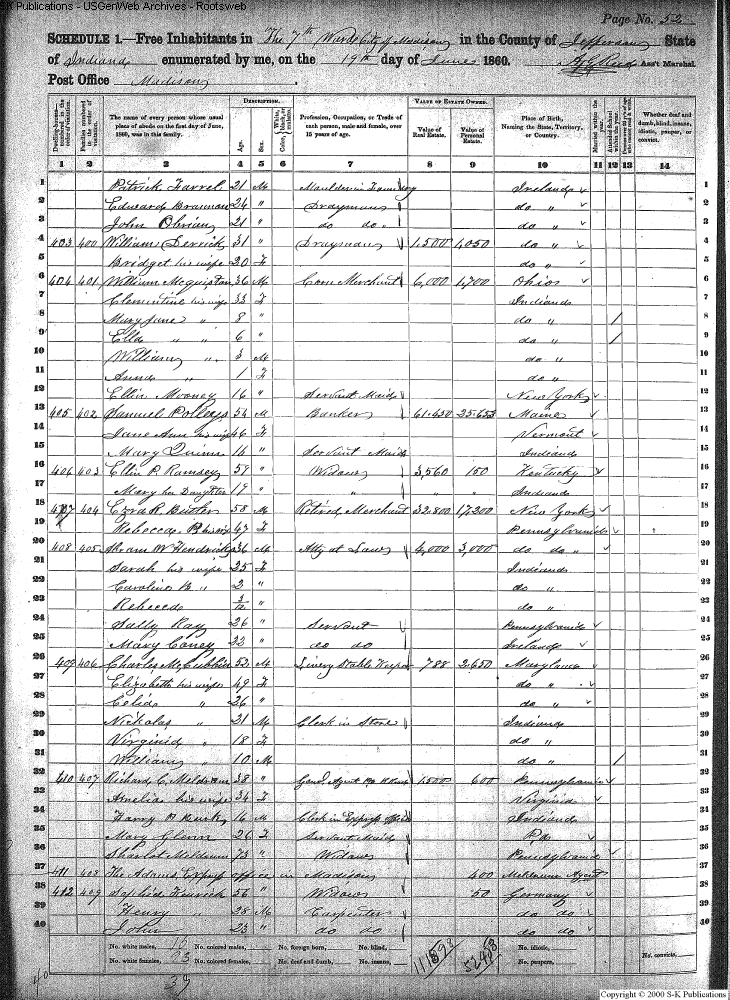 S-K Publications - USGenWeb Archives - Rootsweb
Page No. 52
SCHEDULE 1.—Free Inhabitants in The 7th Ward City of Madison in the County of Jefferson State
of Indiana enumerated by me, on the 19th day of June 1860. Ass't Marshal
Post Office Madison
DESCRIPTION. VALUE OF ESTATE OWNED.
The name of every person whose usual place of abode on the first day of June, 1860, was in this family. Age. Sex. Color, White, black, or mulatto. Profession, Occupation, or Trade of each person, male and female, over 15 years of age. Value of Real Estate. Value of Personal Estate. Place of Birth, Naming the State, Territory, or Country. Whether deaf and dumb, blind, insane, idiotic, pauper, or convict.
1 2 3 4 5 6 7 8 9 10 11 12 13 14
1 Patrick Farrel 21 M Moulder in Foundry Ireland 1
2 Edward 24 " Drayman do " 2
3 John Obrian 21 " do do do " 3
4 403 400 William Derrick 31 " Drayman 1,500 1,050 do " 4
5 Bridget his wife 20 F do " 5
6 404 401 William McQuiston 36 M Corn Merchant 6,000 1,700 Ohio 6
7 Clementine his wife 33 F Indiana 7
8 Mary Jane " 8 " do " / 8
9 Ella " " 6 " do " / 9
10 William " 3 M do " 10
11 Anna " 1 F do " 11
12 Ellen Mooney 16 " Servant Maid New York 12
13 405 402 Samuel 54 M Banker 61,450 Maine 13
14 Jane Ann his wife 46 F Vermont 14
15 Mary Quinn 16 " Servant Maid Indiana 15
16 406 403 Ellen P. Ramsey 59 " Widow 3,560 150 Kentucky 16
17 Mary her Daughter 19 " " " " Indiana 17
18 407 404 Ezra R. Butler 58 M Retired Merchant 32,800 17,200 New York 18
19 Rebecca B his wife 47 F Pennsylvania 19
20 408 405 W Hendricks 36 M Atty at Law 4,000 3,000 do do " 20
21 Sarah his wife 25 F Indiana 21
22 Caroline B " 2 " do " 22
23 Rebecca 3/12 " do " 23
24 Sally Kay 26 " Servant Pennsylvania 24
25 Mary Coney 22 " do do Ireland 25
26 409 406 Charles McCubbin 52 M Livery Stable Keeper 788 2,650 Maryland 26
27 Elizabeth his wife 49 F do " 27
28 Celia " 26 " do " 28
29 Nicholas " 21 M Clerk in Store Indiana 29
30 Virginia " 18 F do " 30
31 William " 10 M do " / 31
32 410 407 Richard C. Meldrum 38 " Agent 1,500 600 Pennsylvania 32
33 Amelia his wife 34 F Virginia 33
34 Harry Burk 16 M Clerk in Express office Indiana 34
35 Mary Glenn 26 F Servant Maid Pa 35
36 Sharlot Meldrum 73 " Widow Pennsylvania 36
37 411 408 The Adams Express office in Madison 400 Meldrum Agent 37
38 412 409 Sophia Heinrick 56 " Widow 50 Germany 38
39 Henry " 28 M Carpenter do do 39
40 John " 23 " do do do do 40
No. white males, 16 No. colored males, No. foreign born, No. blind, No. idiotic, No. convicts,
No. white females, 23 No. colored females, No. deaf and dumb, No. insane, No. paupers,
39
Copyright © 2000 S-K Publications